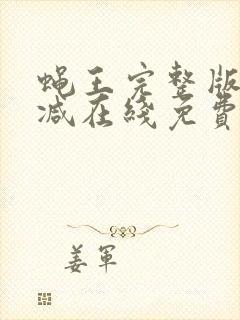 蝇王完整版
减在线免費
姜軍